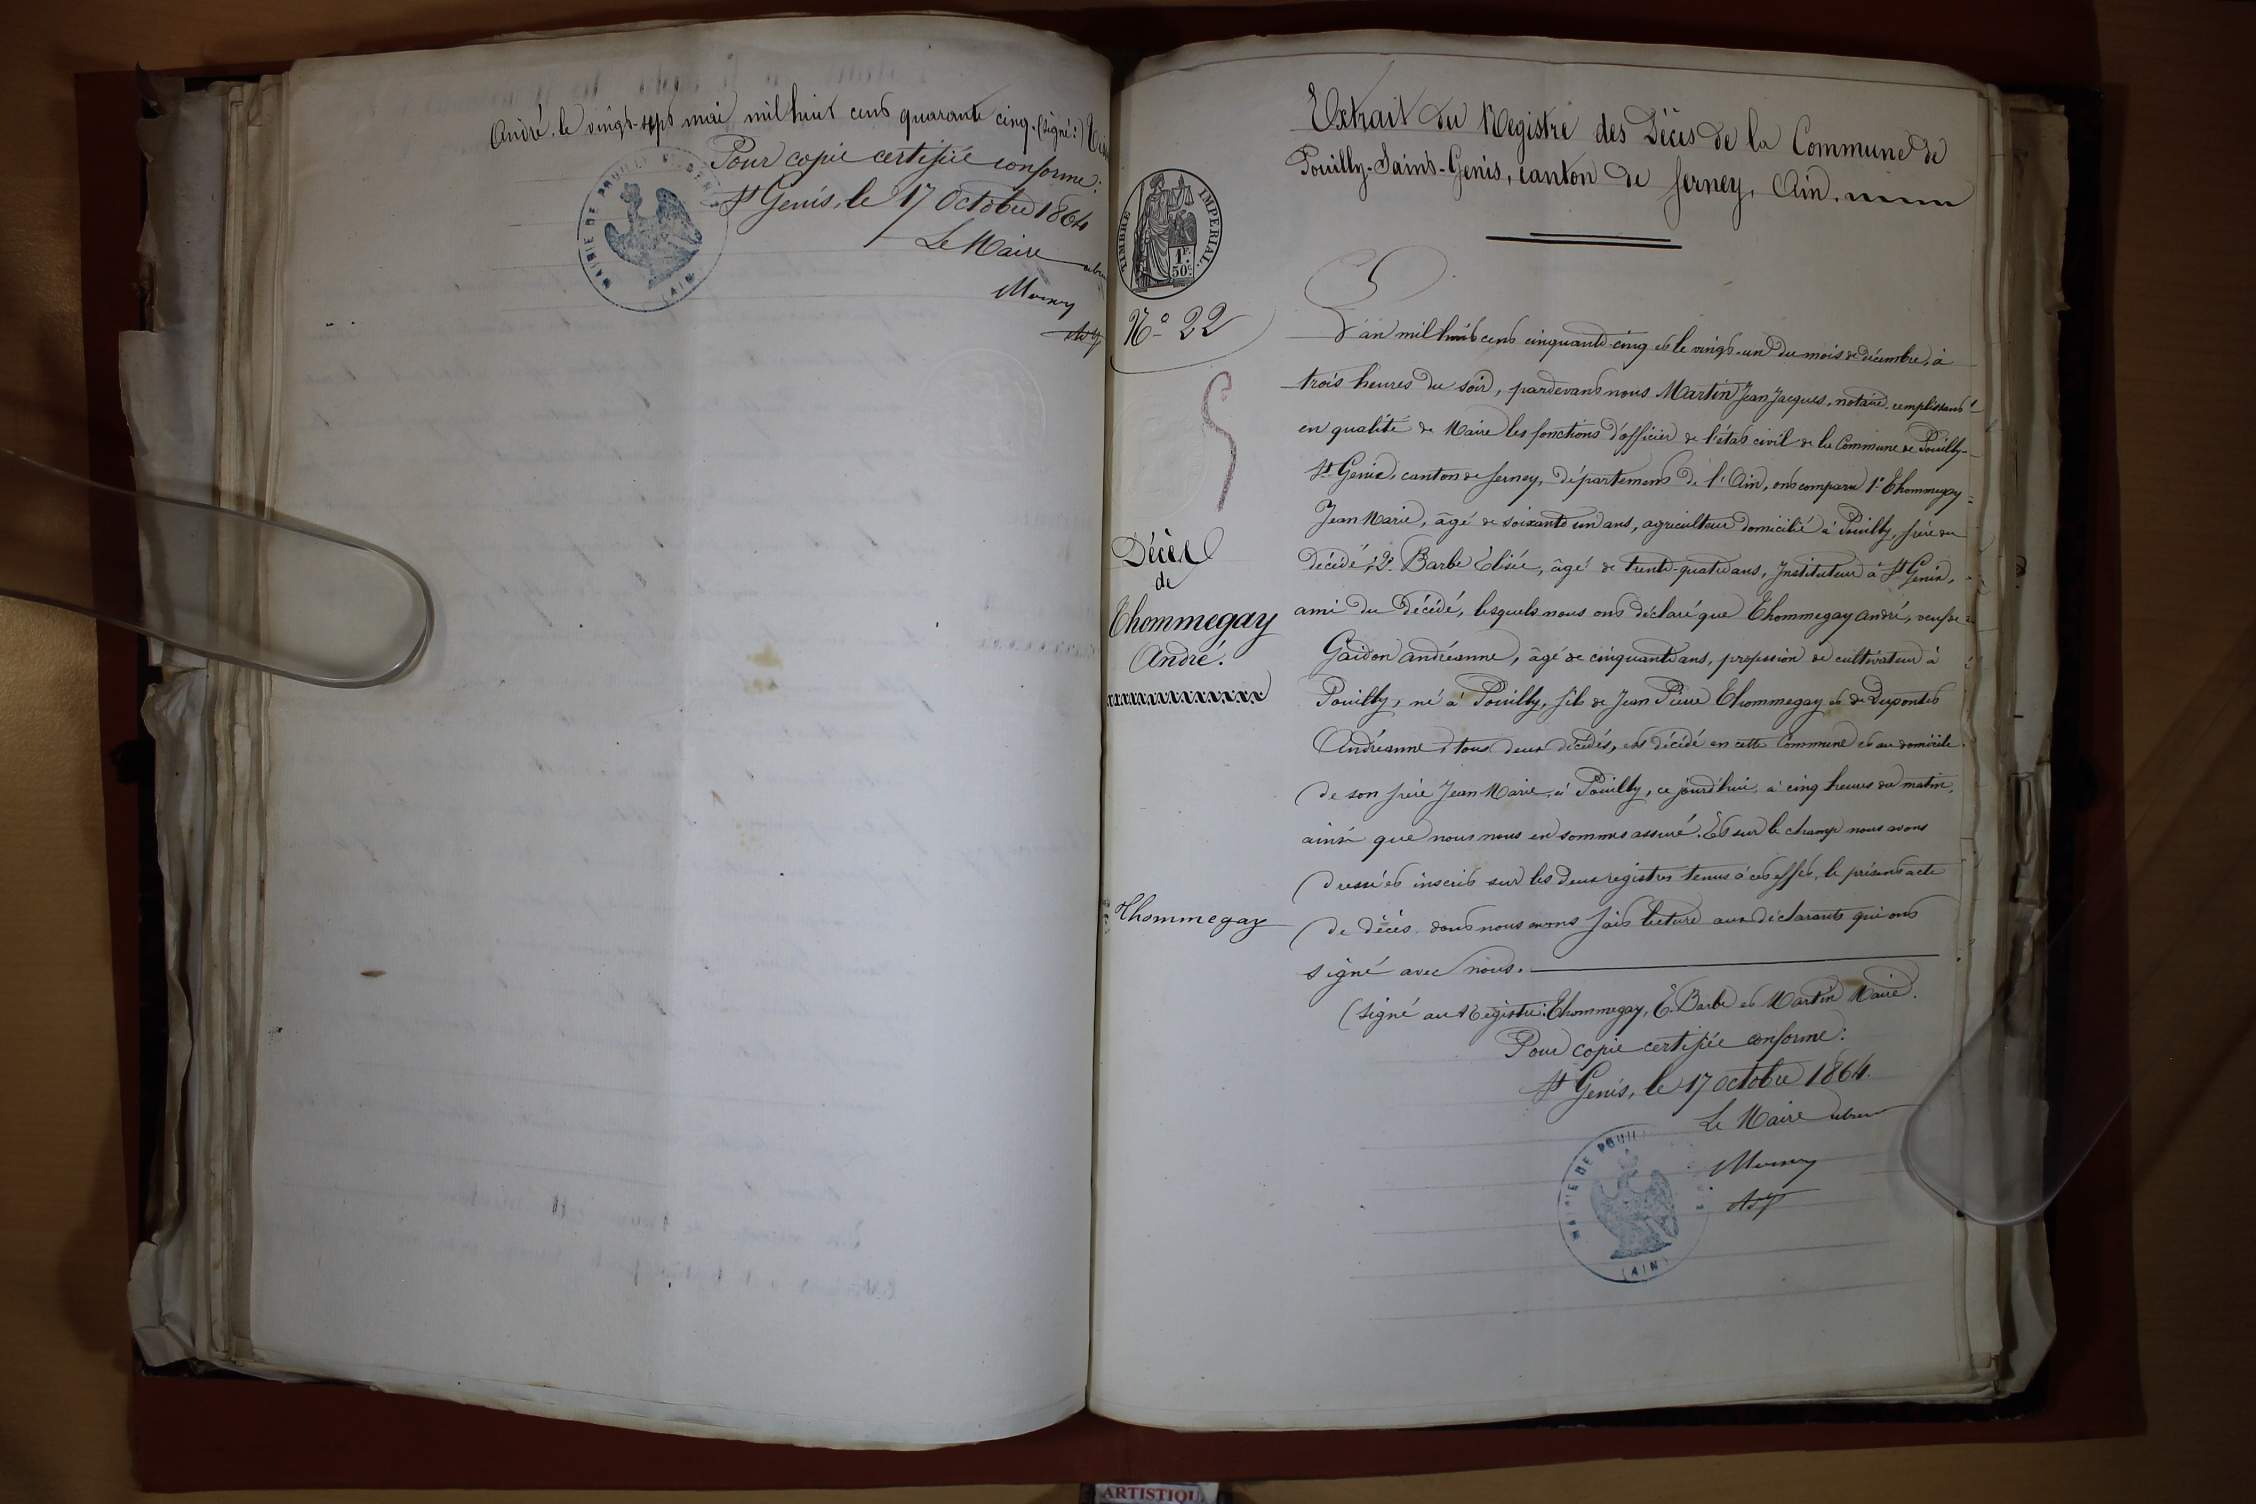 André, le vingt-sept mai mil huit cent quarante cinq. (Signé:)
Pour copie certifiée conforme:
St Genis, le 17 Octobre 1864
Le Maire
MAIRIE DE POUILLY ST GENIS
(AIN)
Extrait du Registre des Décès de la Commune de
Pouilly-Saint-Genis, canton de Ferney, Ain.
TIMBRE IMPERIAL.
1F.
50c.
No 22
L'an mil huit cent cinquante-cinq et le vingt-un du mois de décembre, à
trois heures du soir, pardevant nous Martin Jean Jacques, notaire, remplissant
en qualité de Maire les fonctions d'officier de l'état civil de la Commune de Pouilly-
St Genis, canton de Ferney, département de l'Ain, ont comparu 1o Thommegay
Jean Marie, âgé de soixante un ans, agriculteur domicilié à Pouilly, frère du
décédé; 2o Barbe Élisée, âgé de trente-quatre ans, Instituteur à St Genis,
ami du décédé, lesquels nous ont déclaré que Thommegay André, veuf de
Gaidon Andréanne, âgé de cinquante ans, profession de cultivateur à
Pouilly, né à Pouilly, fils de Jean Pierre Thommegay et de Dupontet
Andréanne, tous deux décédés, est décédé en cette Commune et au domicile
de son frère Jean-Marie, à Pouilly, ce jourd'hui, à cinq heures du matin,
ainsi que nous nous en sommes assuré. Et sur le champ nous avons
dressé et inscrit sur les deux registres tenus à cet effet, le présent acte
de décès dont nous avons fait lecture aux déclarants qui ont
signé avec nous.
Décès
de
Thommegay
André.
Thommegay
(Signé au Registre: Thommegay, E. Barbe et Martin Maire.
Pour copie certifiée conforme:
St Genis, le 17 octobre 1864.
Le Maire
MAIRIE DE POUILL
(AIN)
ARTISTIQU